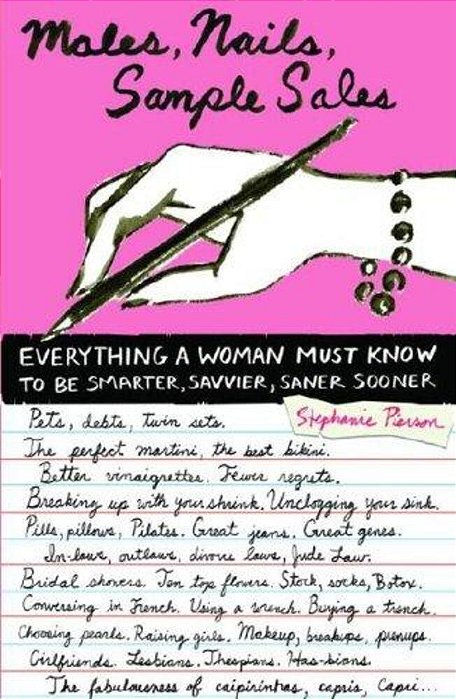 Males, Nails,
Sample Sales
EVERYTHING A WOMAN MUST KNOW
TO BE SMARTER, SAVVIER, SANER SOONER
Stephanie Pierson
Pets, debts, twin sets.
The perfect martini, the best bikini.
Better vinaigrettes. Fewer regrets.
Breaking up with your shrink. Unclogging your sink.
Pills, pillows, Pilates. Great jeans, Great genes.
In-laws, outlaws, divorce laws, Jude Law.
Bridal showers. Ten top flowers. Stock, socks, Botox.
Conversing in French. Using a wrench. Buying a trench.
Choosing pearls. Raising girls. Makeup, breakups, prenups.
Girlfriends. Lesbians. Thespians. Has-bians.
The fabulousness of caipirinhas, capris, Capri...